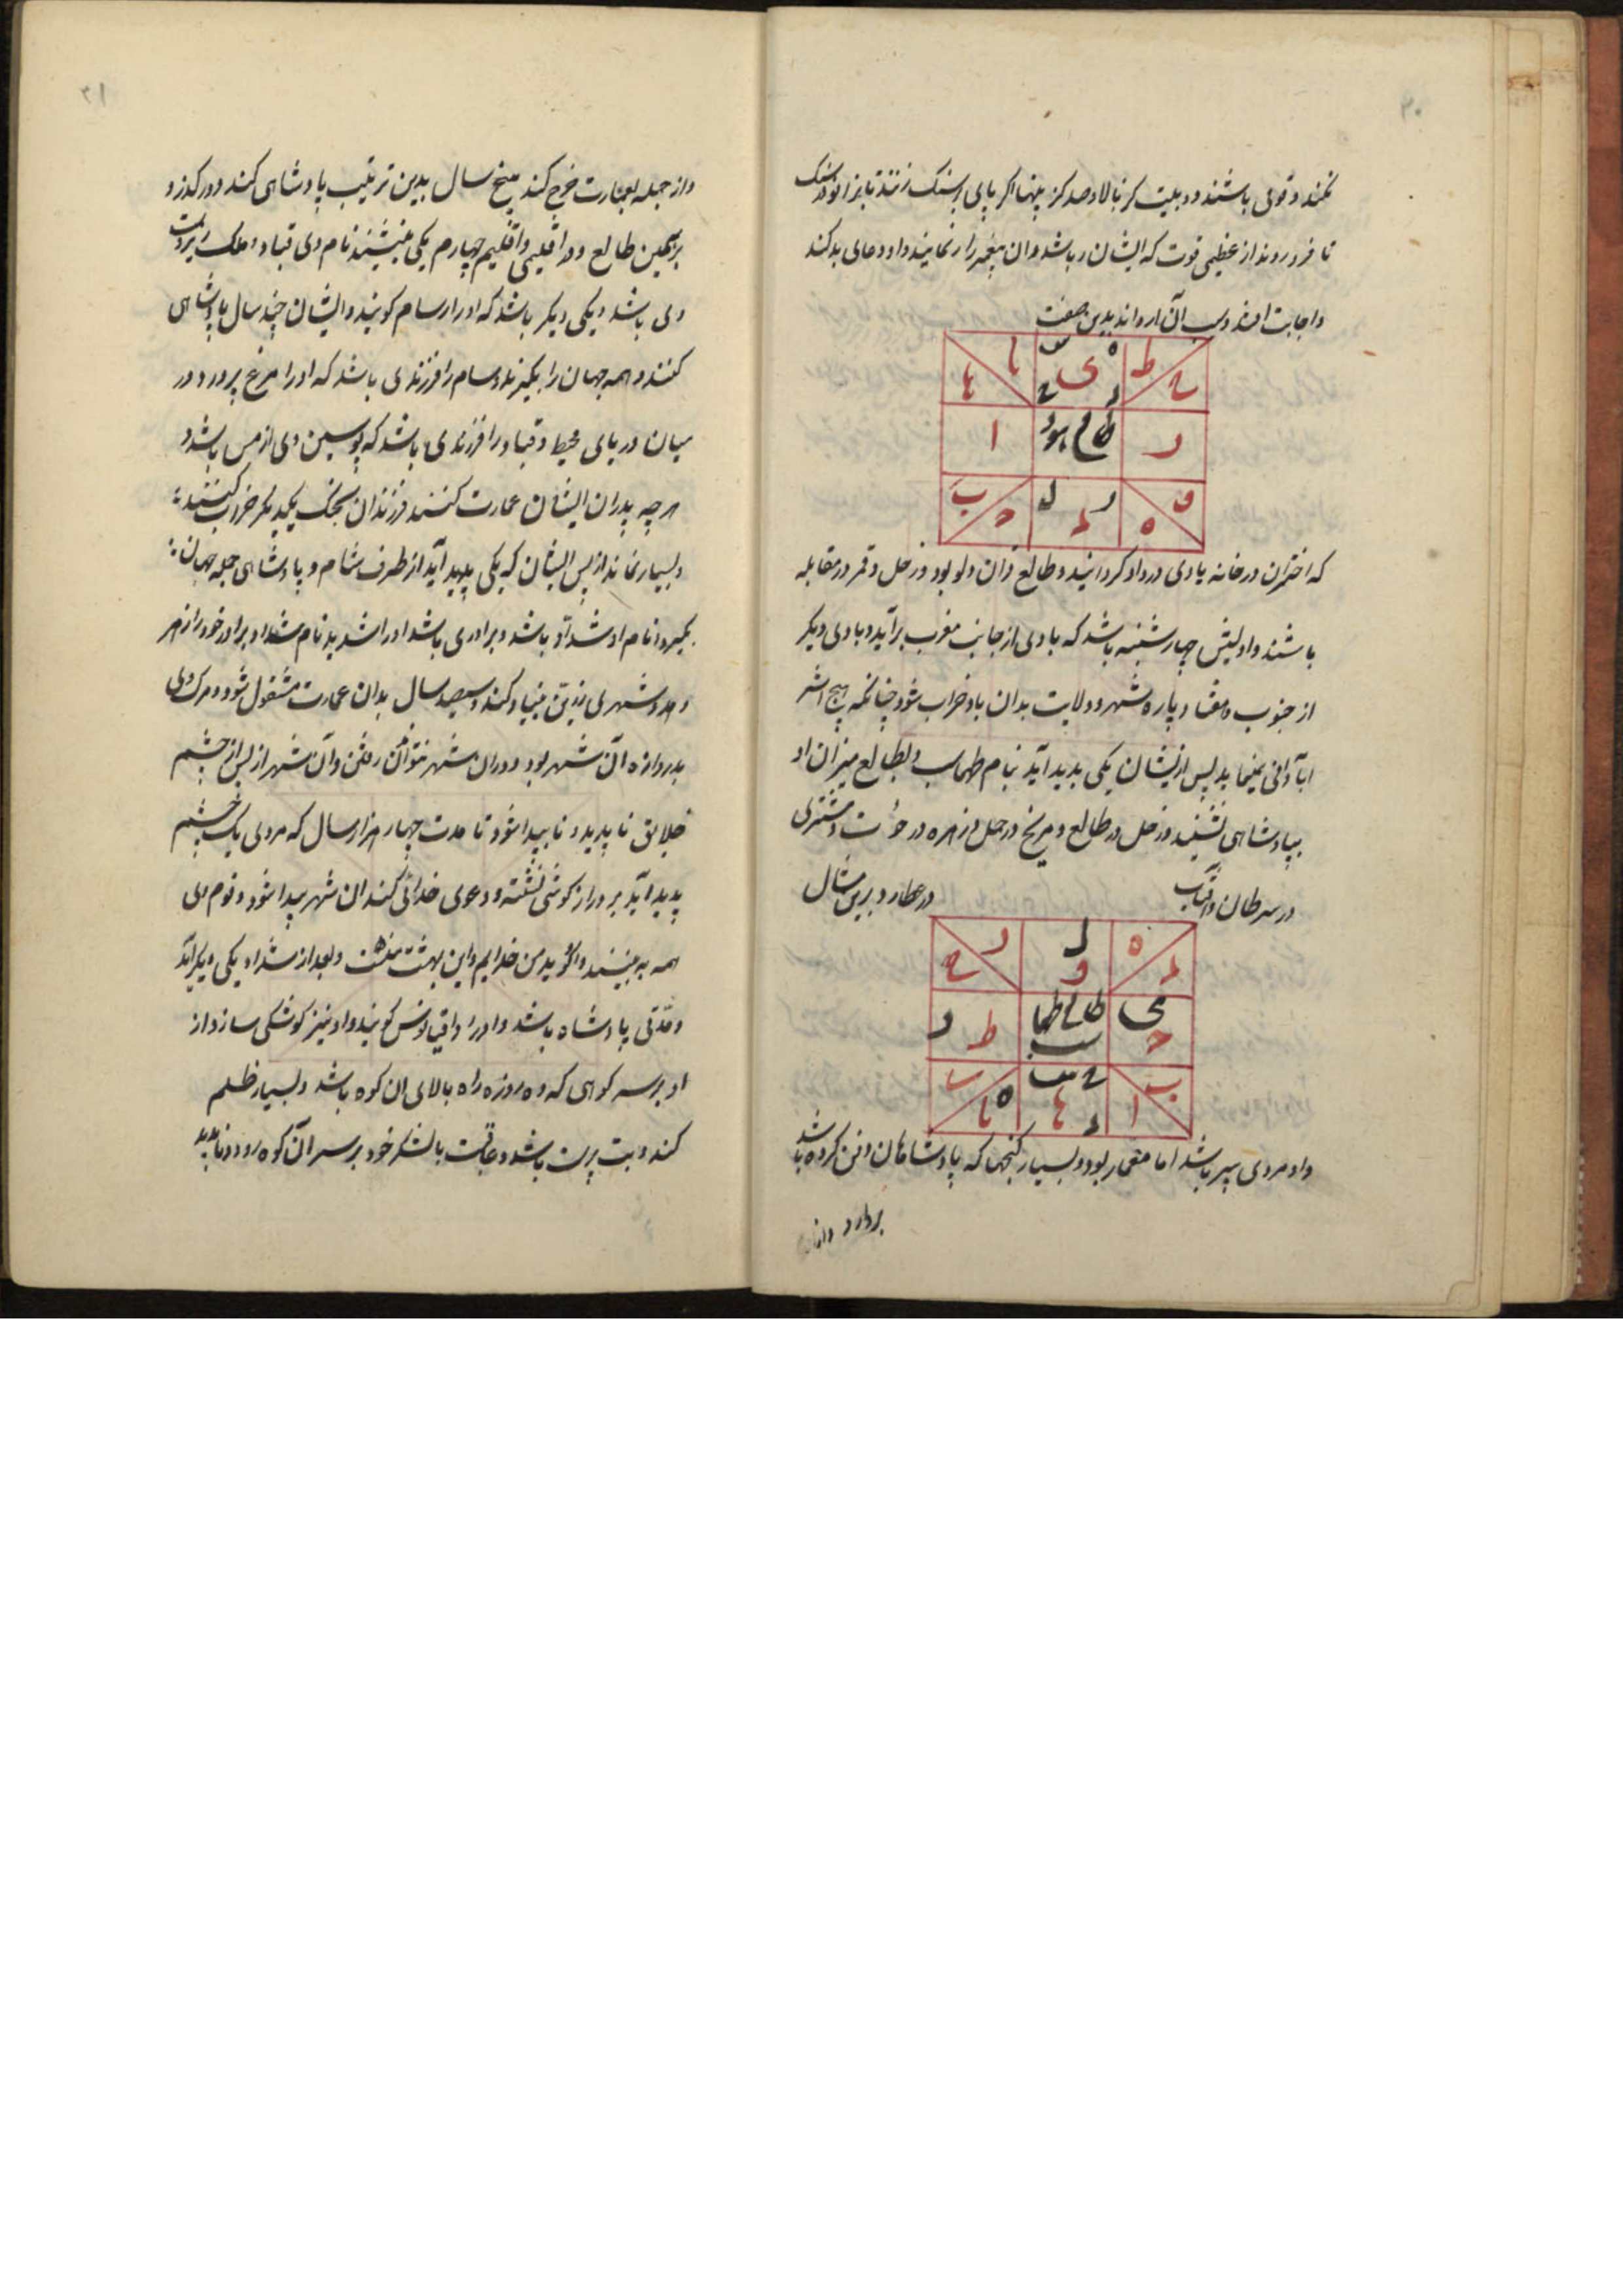 ۲۰
نکنند و قوی باشند دویست گز بالا و صد گز پهنا اگر پای بر سنک زنند تا بزانو در سنک
تا فرو روند از عظیمی قوت که ایشان را باشد و آن پیغمبر را رنجانیند و او دعای بد کند
و اجابت افتد و سبب آن باد اند بدین صفت
طالع هود
که اختران در خانه بادی در و او کرد آیند و طالع قران دلو بود و زحل و قمر در مقابله
باشند و اولیتش چهارشنبه باشد که بادی از جانب مغرب برآید و بادی دیکر
از جنوب و هفتاد پاره شهر و ولایت بدان باد خراب شود چنانکه هیچ اثر
آبادانی ننماید پس ازیشان یکی پدید آید بنام طهماسب و بطالع میزان او
بپادشاهی نشیند و زحل در طالع و مریخ در حمل و زهره در حوت و مشتری
در سرطان و آفتاب در عطارد برین مثال
طالع طهماسب
و او مردی پیر باشد اما معمار بود و بسیار کنجها که پادشاهان دفن کرده باشد
بردارد
۲۱
و از جمله بعمارت خرج کند پنج سال بدین ترتیب پادشاهی کند و درکذرد و
بر همین طالع و در اقلیمی و اقلیم چهارم یکی بنشیند نام وی قباد و ملک زیر دست
وی باشد و یکی دیکر باشد که او را سام کویند و ایشان چند سال پادشاهی
کنند و همه جهان را بکیرند و سام را فرزندی باشد که او را مرغ پرورد در
میان دریای محیط و قباد را فرزندی باشد که پوستین وی از مس باشد و
هر چه پدران ایشان عمارت کنند فرزندان بجنک یکدیکر خراب کنند
و بسیار نماند از پس ایشان که یکی پدید آید از طرف شام و پادشاهی جمله جهان
بکیرد نام او شداد باشد و برادری باشد او را شدید نام شداد برادر خود را زهر
دهد و شهری زرین بنیاد کند و سیصد سال بدان عمارت مشغول شود و مرک وی
بدروازه آن شهر بود و در آن شهر نتوان رفتن و آن شهر از پس از چشم
خلایق ناپدید و ناپیدا شود تا مدت چهار هزار سال که مردی یک چشم
پدید آید بر دراز کوشی نشسته و دعوی خدائی کند آن شهر پیدا شود و قوم وی
همه به بینند و او کوید من خدایم و این بهشت منست و بعد از شداد یکی دیکر آید
و مدتی پادشاه باشد و او را دقیانوس کویند و او نیز کوشکی سازد از
او بر سر کوهی که ده روزه راه بالای آن کوه باشد و بسیار ظلم
کند و بت پرست باشد و عاقبت با لشکر خود بر سر آن کوه رود و ناپدید